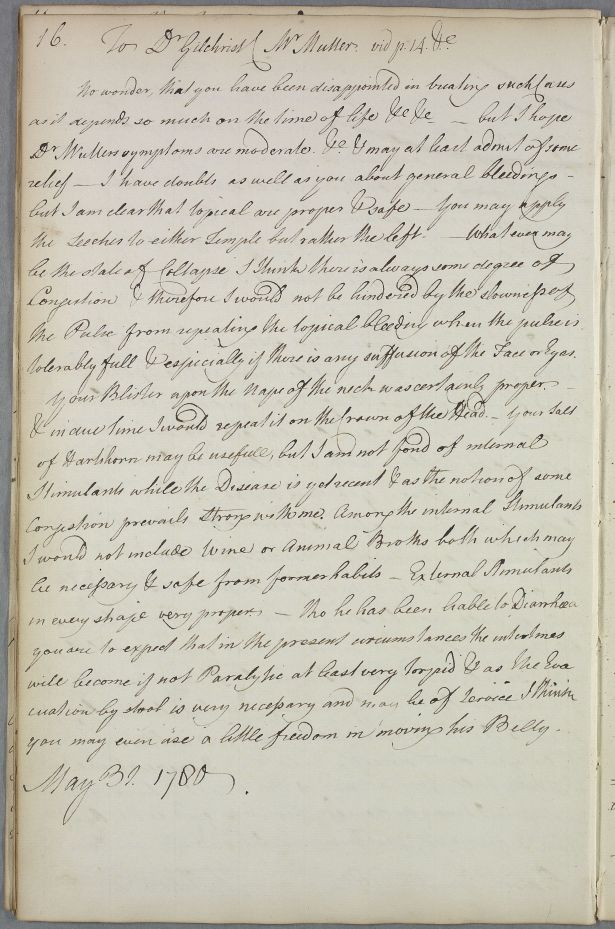 16. To Dr Gilchrist Mr Muller. vid p. 14. &c
No wonder, that you have been disappointed in treating such Cases
as it depends so much on the time of life &c &c — but I hope
Dr Mullers symptoms are moderate. &c. & may at least admit of some
relief — I have doubts as well as you about general bleedings —
but I am clear that topical are proper & safe — You may apply
the Leeches to either Temple but rather the left. — Whatever may
be the state of Collapse I think there is always some degree of
Congestion & therefore I would not be hindered by the slowness of
the Pulse from repeating the topical bleeding when the pulse is
tolerably full & especially if there is any suffusion of the Face or Eyes.
Your Blister upon the Nape of the neck was certainly proper —
& in due time I would repeat it on the Crown of the Head. — Your Salt
of Hartshorn may be usefull, but I am not fond of internal
Stimulants while the Disease is yet recent & as the notion of some
Congestion prevails strong with me. Among the internal Stimulants
I would not include Wine or Animal Broths both which may
be necessary & safe from former habits — External Stimulants
in every shape very proper. — Tho he has been liable to Diarrhœa
you are to expect that in the present circumstances the intestines
will become if not Paralytic at least very torpid & as the Eva
cuation by stool is very necessary and may be of service I think
you may even use a little freedom in moving his Belly.
May 31. 1780.